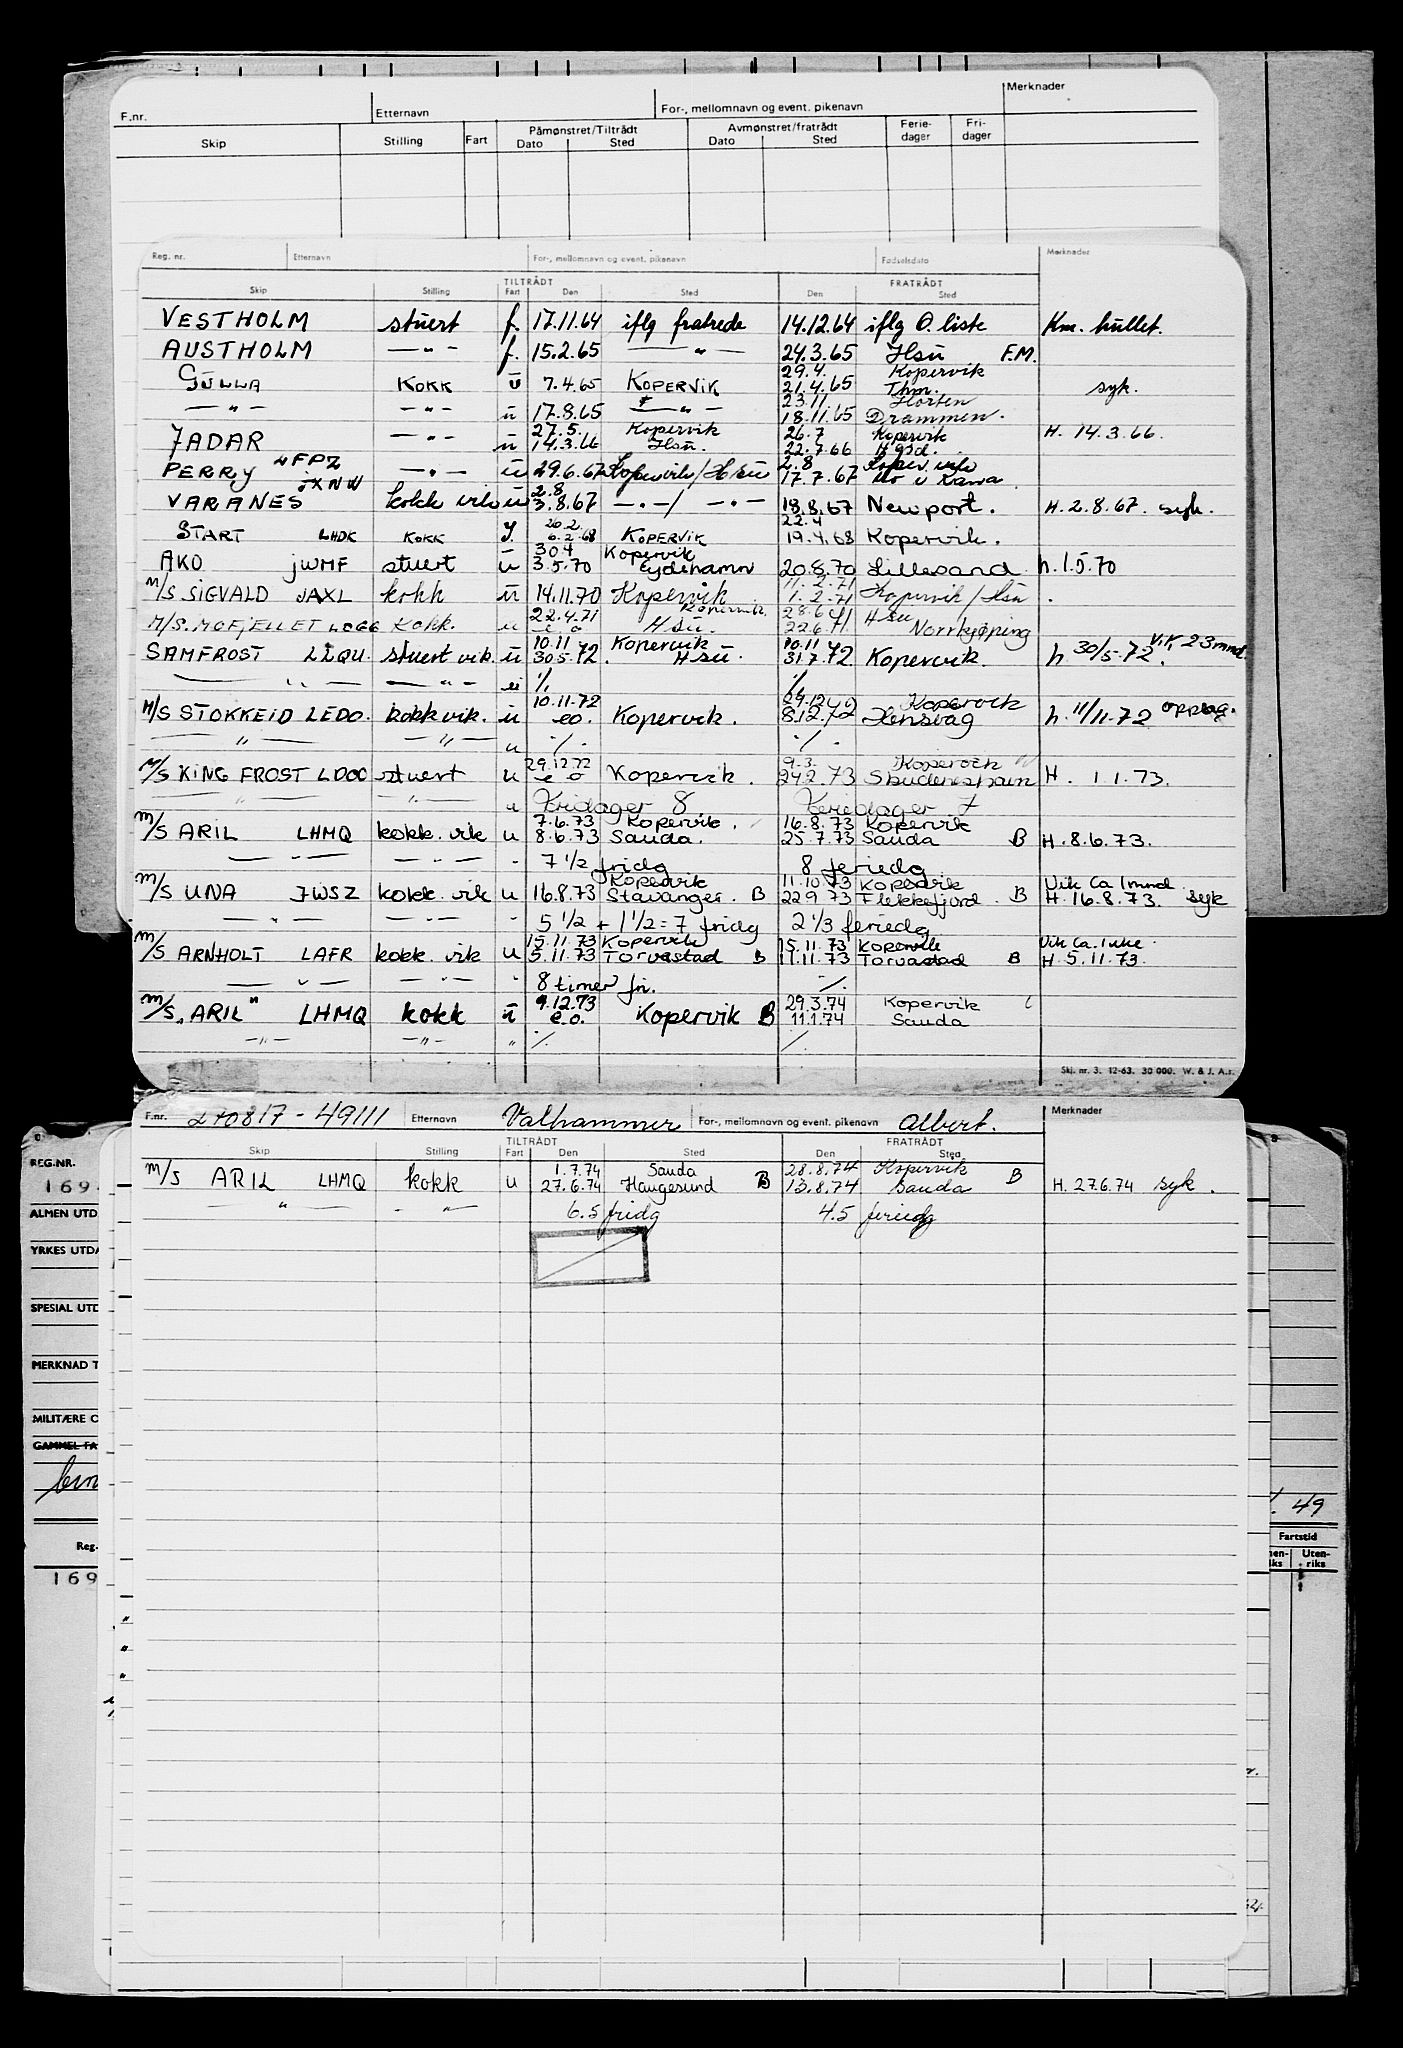 F.nr. Etternavn For-, mellomnavn og event. pikenavn Merknader
Skip Stilling Fart Påmønstret/Tiltrådt Dato Sted Avmønstret/fratrådt Dato Sted Ferie-dager Fri-dager
Reg. nr. Etternavn For-, mellomnavn og event. pikenavn Fødselsdato Merknader
TILTRÅDT FRATRÅDT
Skip Stilling Fart Den Sted Den Sted
VESTHOLM stuert f. 17.11.64 iflg fratrede 14.12.64 iflg O. liste Km. hullet.
AUSTHOLM — " — f. 15.2.65 — " — 24.3.65 Hsu F.M.
29.4. Kopervik
GULLA KOKK u 7.4.65 KOPERVIK 21.4.65 Thm. syk.
23.11 Horten
— " — — " — u 17.8.65 — " — 18.11.65 Drammen.
27.5. Kopervik 26.7 Kopervik
JADAR — " — u 14.3.66 Hsu. 22.7.66 H. 14.3.66.
2.8 Kopervik
PERRY LFPZ — " — u 29.6.67 Kopervik/Hsu 17.7.67
JXNW 2.8
VARANES kokk vik u 3.8.67 — " —/ — " — 18.8.67 Newport. H. 2.8.67. syk.
20.2 22.4
START LHDK KOKK 6.2.68 KOPERVIK 19.4.68 Kopervik.
30.4 Kopervik
AKO JWMF stuert u 3.5.70 Eydehamn 20.8.70 Lillesand h. 1.5.70
11.2.71
M/S SIGVALD JAXL kokk u 14.11.70 Kopervik 1.2.71 Kopervik/Hsu
22.4.71 Kopervik 28.6.71 Hsu
M/S. MOFJELLET LDGG Kokk. u e o Hsu. 22.6.71 Norrkjöping
10.11 Kopervik 10.11
SAMFROST LLQU stuert vik. u 30.5.72. Hsu. 31.7.72 Kopervik. h. 30/5-72. Vik 23 mnd.
— " — — " — u ./. ./.
10.11.72 29.12 Kopervik
M/S STOKKEID LEDO. kokk vik. u eo. Kopervik. 8.12.72 Hensvåg h. 11/11-72 opplag.
— " — — " — u ./. ./.
29.12.72 9.3. Kopervik
M/S KING FROST LDOC stuert u e o Kopervik. 24.2.73 Skudeneshavn H. 1.1.73.
— " — — " — u Fridager 8 Feriedager 7
7.6.73 Kopervik. 16.8.73 Kopervik
M/S ARIL LHMQ kokk. vik u 8.6.73 Sauda. 25.7.73 Sauda B H. 8.6.73.
— " — — " — " 7 1/2 fridg 8 feriedg
Kopervik 11.10.73 Kopervik Vik Ca 1 mnd
M/S UNA JWSZ kokk. vik u 16.8.73 Stavanger. B 22.9.73 Flekkefjord. B H. 16.8.73. syk
— " — — " — 5 1/2 + 1 1/2 = 7 fridg 2 1/3 feriedg
15.11.73 Kopervik 15.11.73 Kopervik Vik Ca. 1 uke
M/S ARNHOLT LAFR kokk. vik u 5.11.73 Torvastad B 11.11.73 Torvastad B H. 5.11.73.
— " — — " — " 8 timer fri. ./.
9.12.73 29.3.74 Kopervik
M/S "ARIL" LHMQ kokk u e.o. Kopervik B 11.1.74 Sauda
— " — — " — " ./. ./.
Skj. nr. 3. 12-63. 30 000. W. & J. A.s
F.nr. 270817-49111 Etternavn Valhammer For-, mellomnavn og event. pikenavn Albert. Merknader
TILTRÅDT FRATRÅDT
Skip Stilling Fart Den Sted Den Sted
1.7.74 Sauda 28.8.74 Kopervik
M/S ARIL LHMQ kokk u 27.6.74 Haugesund B 13.8.74 Sauda B H. 27.6.74 syk.
— " — — " — 6.5 fridg 4.5 feriedg
REG.NR.
169
ALMEN UTD
YRKES UTDA
SPESIAL UTD
MERKNAD T
MILITÆRE O
GAMMEL FA
Reg-
169
49
Fartstid
nen-iks Uten-riks